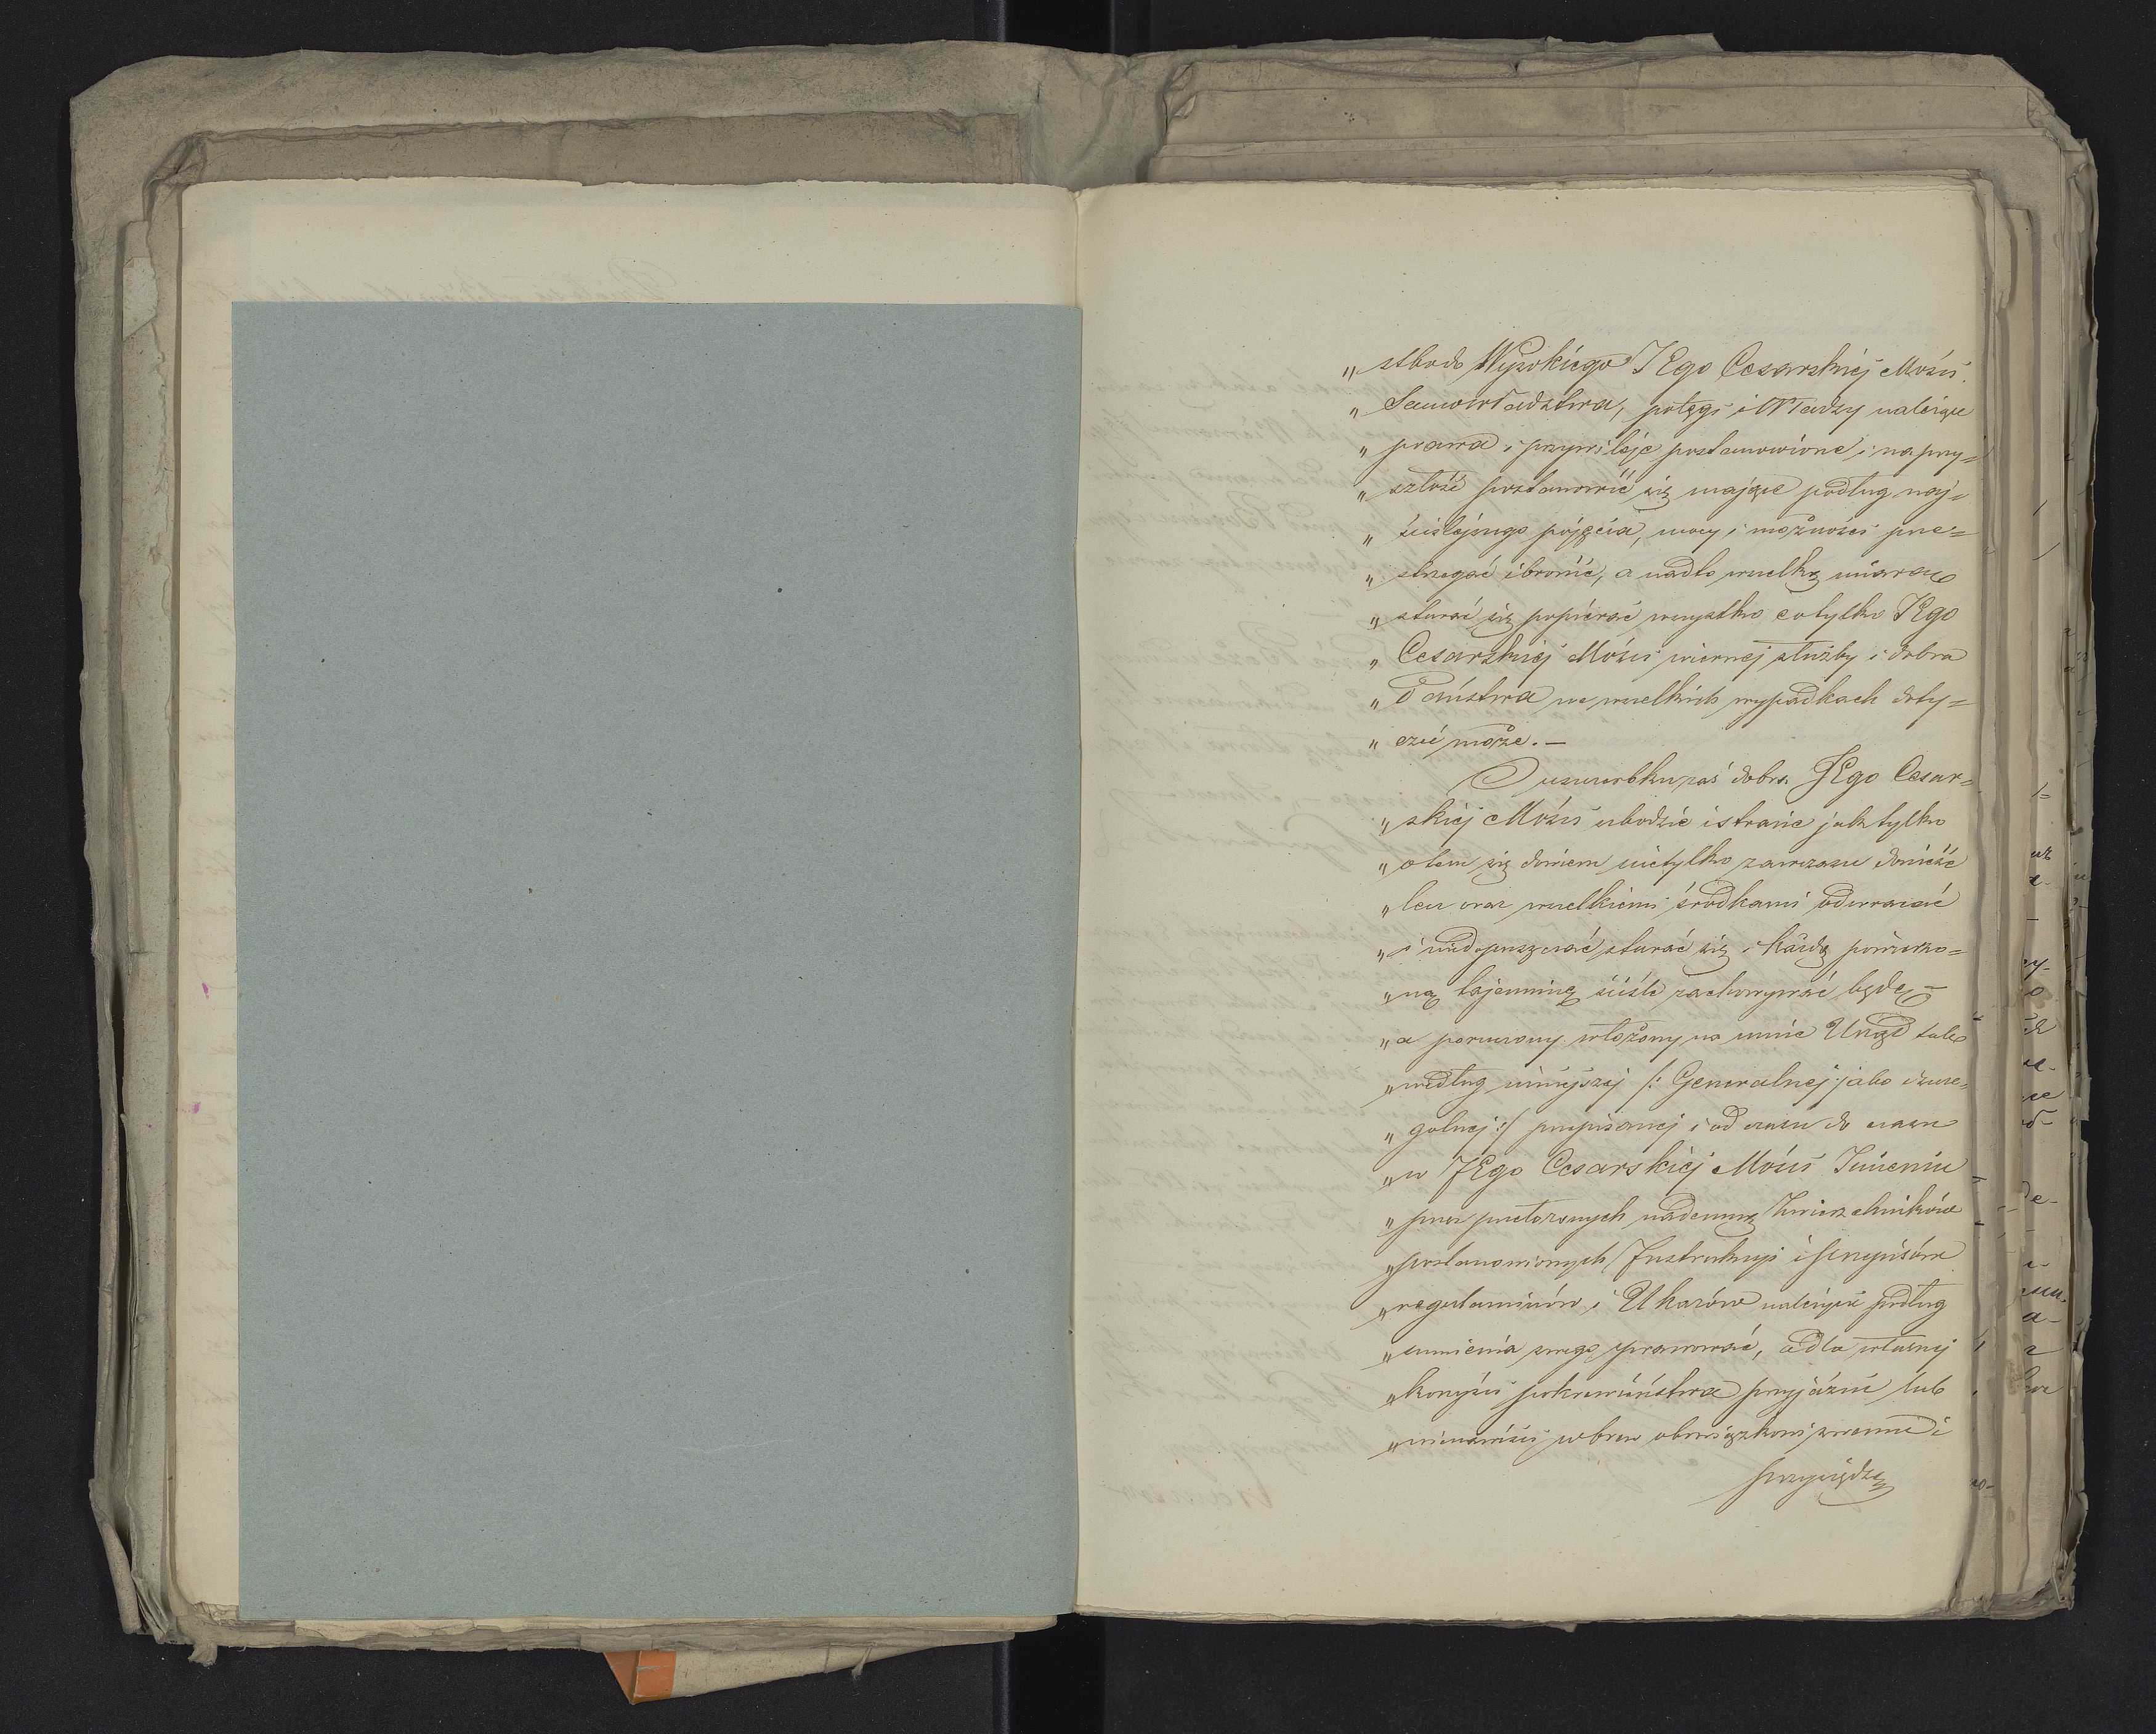 „ stbodo Wysokiego JEgo Cesarskiéj Mości
„ Samowładztwa, potęgi i Władzy należące
„ prawa i przywileje postanowione i na przy=
„ szłość postanowić się mające podług naj=
„ ściślejszego pojęcia, mocy i możności prze=
„ strzegać i bronić, a nadto wszelką miarą
„ starać się popierać wszystko co tylko JEgo
„ Cesarskiéj Mości wiernej służby i dobra
„ Państwa we wszelkich wypadkach doty=
„ czeć może. —
O uszczerbku zaś dobra JEgo Cesar=
„ skiéj Mości szkodzie i stracie jak tylko
„ o tem się dowiem nie tylko zawczasu donieść
„ lecz oraz wszelkiemi środkami odwracać
„ i niedopuszczać starać się i każdą powierzo=
„ ną tajemnicę ściśle zachowywać będę —
„ a poruczony włożony na mnie Urząd tak
„ według niniejszéj /: Generalnej jako szcze=
„ gólnej :/ przepisanej i od czasu do czasu
„ w JEgo Cesarskiéj Mości Imieniu
„ przez przełożonych nademną Zwierzchników
„ postanowionych Instrukcyi i przepisów
„ regulaminów i Ukazów należycie podług
„ sumienia swego sprawować, a dla własnej
„ korzyści pokrewieństwa przyjaźni lub
„ nienawiści wbrew obowiązkowi swemu i
przysiędze